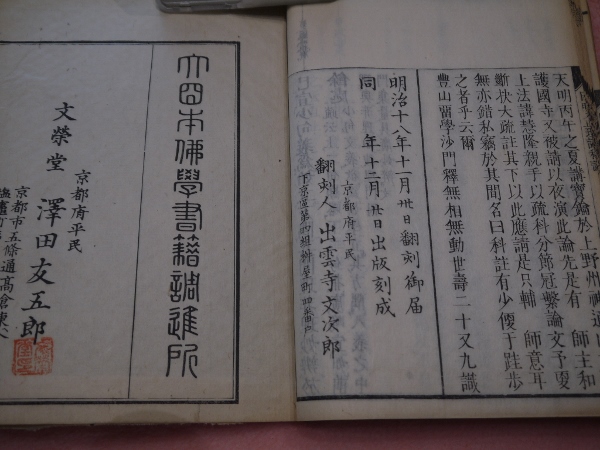 天明丙午之夏講寶鑰於上野州神通山
護國寺又被請以夜演此論先是有　師主和
上法諱慧隆親手以疏科分節冠繫論文予更
斷抉大疏註其下以此應請是只輔　師意耳
無亦錯私竊於其間名曰科註有少便于跬步
之者乎云爾
豊山畱學沙門釋無相無動世壽二十又九識
明治十八年十一月卅日翻刻御届
同　年十二月卅日出版刻成
京都府平民
翻刻人　出雲寺文次郎
大日本佛學書籍調進所
京都府平民
文榮堂　澤田友五郎
京都市五條通高倉東入